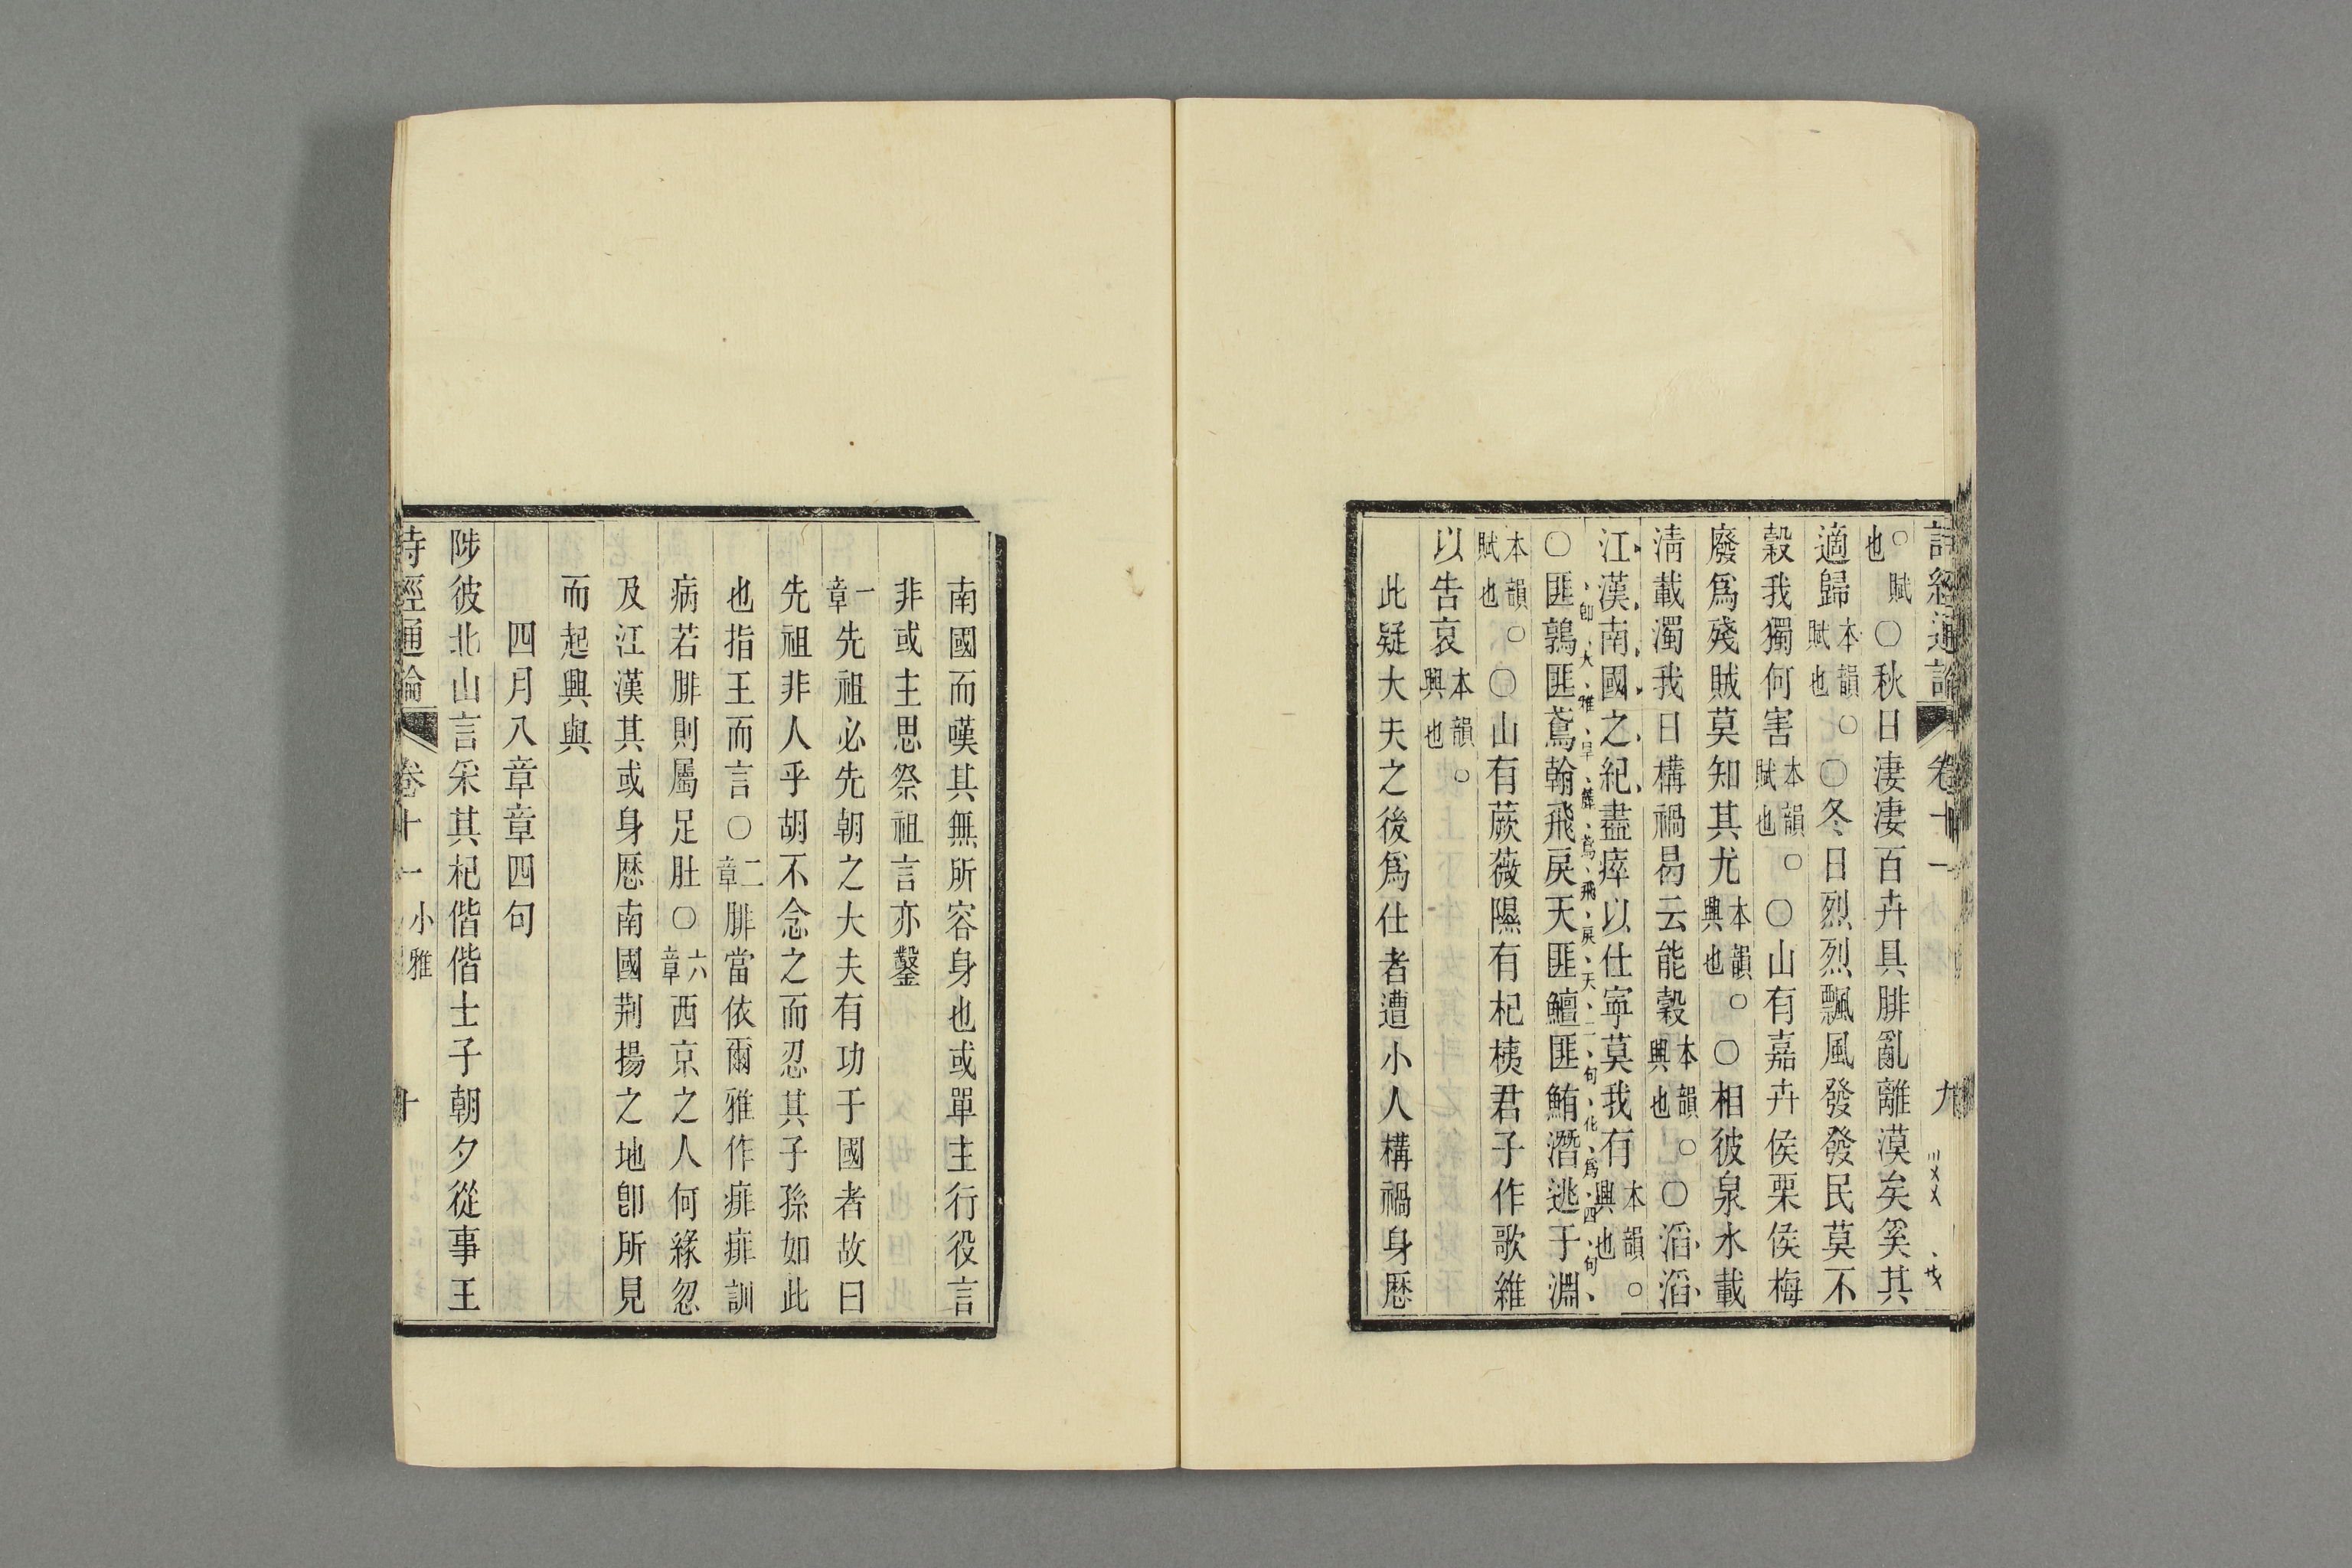 詩經通論 卷十一 九
也○賦〇秋日淒淒百卉具腓亂離漠矣奚其
適歸本韻○賦也〇冬日烈烈飄風發發民莫不
穀我獨何害本韻○賦也〇山有嘉卉侯栗侯梅
廢爲殘賊莫知其尤本韻○興也〇相彼泉水載
淸載濁我日構禍曷云能穀本韻○興也〇滔滔
江漢南國之紀盡瘁以仕寧莫我有本韻○興也
卽大雅旱麓鳶飛戾天二句化爲四句
〇匪鶉匪鳶翰飛戾天匪鱣匪鮪潛逃于淵
本韻○賦也〇山有蕨薇隰有杞桋君子作歌維
以告哀本韻○興也
此疑大夫之後爲仕者遭小人構禍身歷
南國而嘆其無所容身也或單主行役言
非或主思祭祖言亦鑿
一章先祖必先朝之大夫有功于國者故曰
先祖非人乎胡不念之而忍其子孫如此
也指王而言〇二章腓當依爾雅作痱痱訓
病若腓則屬足肚〇六章西京之人何緣忽
及江漢其或身歷南國荆揚之地卽所見
而起興與
四月八章章四句
陟彼北山言采其杞偕偕士子朝夕從事王
詩經通論 卷十一 小雅 十